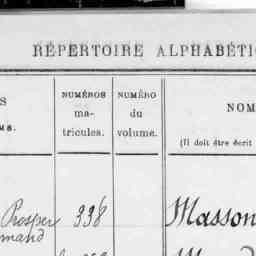 RÉPERTOIRE ALPHABÉTI
NUMÉROS
ma-
tricules.
NUMÉRO
du
volume.
NOM
(Il doit être écrit
S
MS.
Prosper
mand
338
Masson